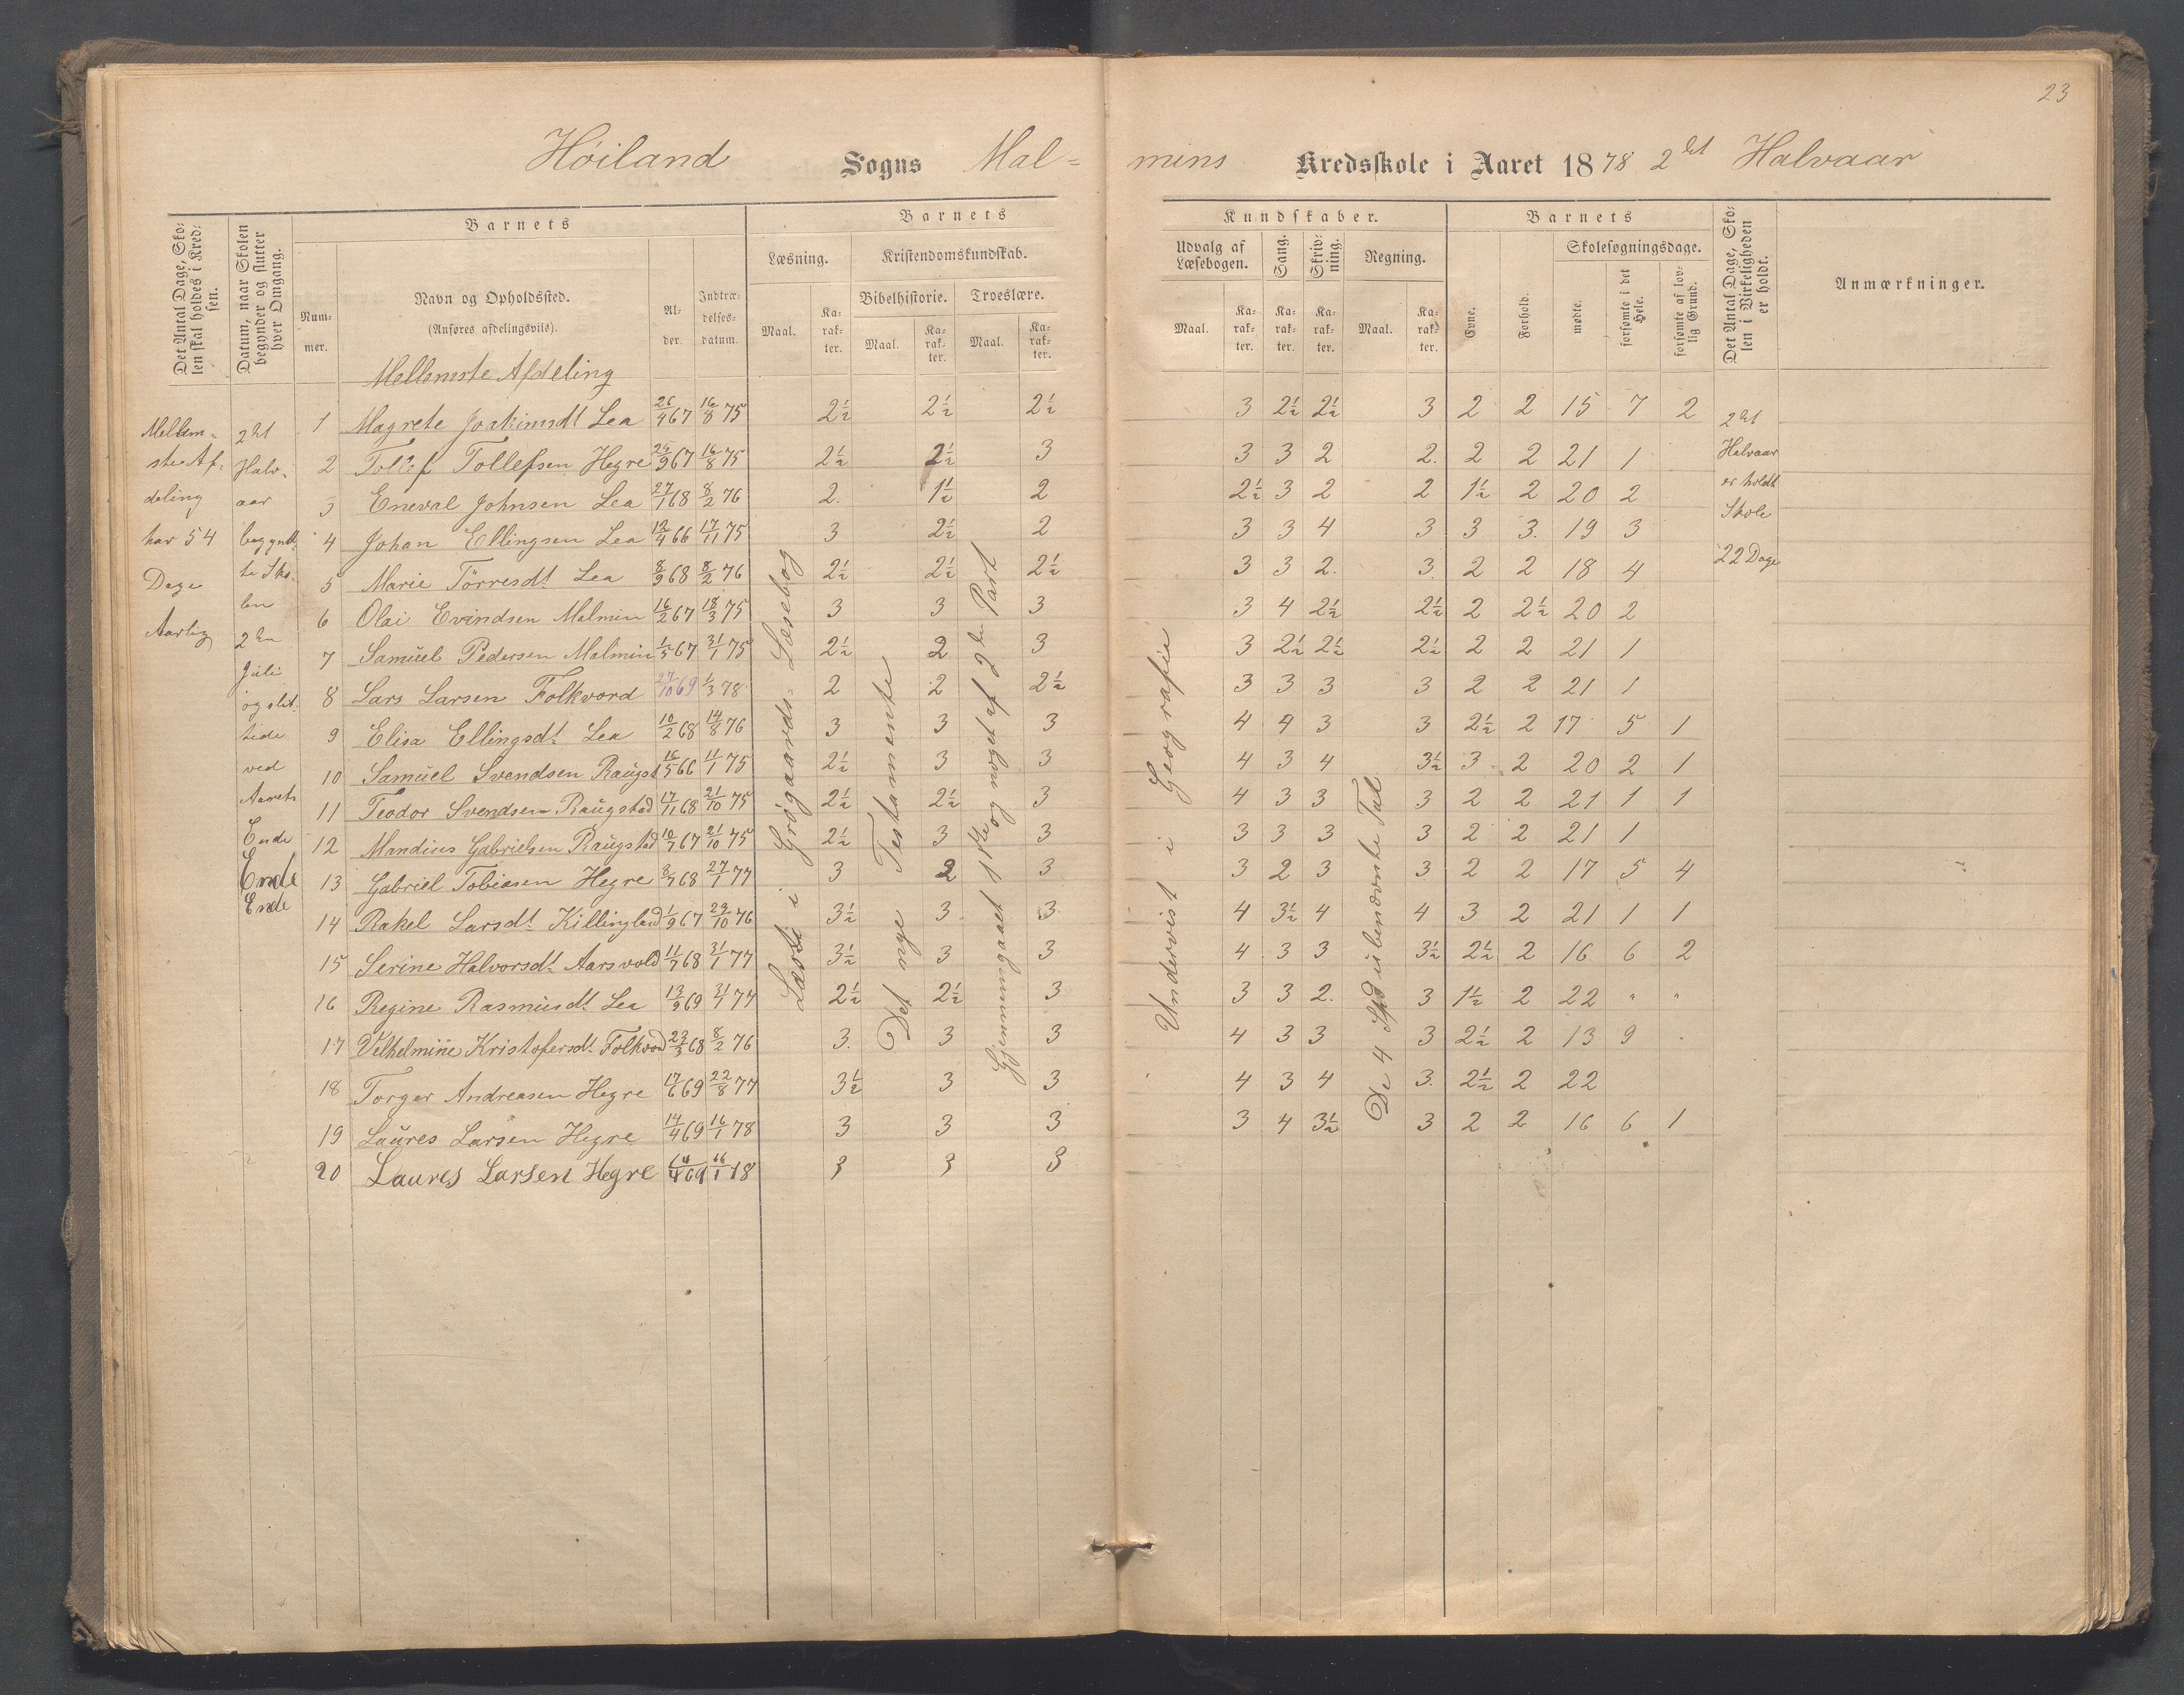 23
Höiland Sogns Mal=
mins Kredsskole i Aaret 1878 2det Halvaar
Det Antal Dage, Skolen skal holdes i Kredsen.
Datum, naar Skolen begynder og slutter hver Omgang.
Barnets
Nummer.
Navn og Opholdssted.
(Anføres afdelingsviis).
Alder.
Indtrædelsesdatum.
Barnets
Læsning.
Kristendomskundskab.
Maal.
Karakter.
Bibelhistorie.
Troeslære.
Maal.
Karakter.
Maal.
Karakter.
Kundskaber.
Udvalg af Læsebogen.
Sang.
Skrivning.
Regning.
Maal.
Karakter.
Karakter.
Karakter.
Maal.
Karakter.
Barnets
Evne.
Forhold.
Skolesøgningsdage.
mødte.
forsømte i det Hele.
forsømte af lovlig Grund.
Det Antal Dage, Skolen i Virkeligheden er holdt.
Anmærkninger.
Mellemste Afdeling
1 Magrete Joakimsdt Lea 26/4 67 16/8 75 2½ 2½ 2½ 3 2½ 2½ 3 2 2 15 7 2
2 Tollef Tollefsen Hegre 25/9 67 16/8 75 2½ 2½ 3 3 3 2 2. 2 2 21 1
3 Eneval Johnsen Lea 27/1 68 8/2 76 2. 1½ 2 2½ 3 2 2 1½ 2 20 2
4 Johan Ellingsen Lea 12/4 66 17/11 75 3 2½ 2 3 3 4 3 3 3. 19 3
5 Marie Törresdt Lea 8/9 68 8/2 76 2½ 2½ 2½ 3 3 2. 3. 2 2 18 4
6 Olai Evindsen Malmin 16/2 67 18/3 75 3 3 3 3 4 2½ 2½ 2 2½ 20 2
7 Samuel Pedersen Malmin 1/5 67 31/1 75 2½ 2 3 3 2½ 2½ 2½ 2 2 21 1
8 Lars Larsen Folkvord 27/10 69 1/3 78 2 2 2½ 3 3 3 3 2 2 21 1
9 Elisa Ellingsdt. Lea 10/2 68 14/8 76 3 3 3 4 4 3 3 2½ 2 17 5 1
10 Samuel Svendsen Raugst 16/5 66 11/1 75 2½ 3 3 4 3 4 3½ 3 2 20 2 1
11 Teodor Svendsen Raugstad 17/11 68 21/10 75 2½ 2½ 3 4 3 3 3 2 2 21 1 1
12 Mandius Gabrielsen Raugstad 10/7 67 21/10 75 2½ 3 3 3 3 3 3 2 2 21 1
13 Gabriel Tobiasen Hegre 8/7 68 27/1 77 3 2 3 3 2 3 3 2 2 17 5 4
14 Rakel Larsdt. Killingland 1/9 67 23/10 76 3½ 3 3 4 3½ 4 4 3 2 21 1 1
15 Serine Halvorsdt. Aarsvold 11/7 68 31/1 77 3½ 3 3 4 3 3 3½ 2½ 2 16 6 2
16 Regine Rasmusdt. Lea 13/9 69 31/1 77 2½ 2½ 3 3 3 2. 3 1½ 2 22 " "
17 Vilhelmine Kristofersdt. Folkvod 23/3 68 8/2 76 3. 3 3 4 3 3 3 2½ 2 13 9
18 Torger Andreasen Hegre 17/6 69 22/8 77 3½ 3 3 4 3 4 3. 2½ 2 22
19 Laures Larsen Hegre 14/4 69 16/1 78 3 3 3 3 4 3½ 3 2 2 16 6 1
20 Laures Larsen Hegre 14/4 69 16/1 78 3 3 3
Mellem-
ste Af-
deling
har 54
Dage
Aarlig
2det
Halv-
aar
begynt
te Sko-
len
2den
Juli
og slut-
tede
ved
Aarets
Ende
Ende
Ende
Læste i Grögaards Læsebog
Det nye Testamente
Gjennemgaaet 1ste og noget af 2den Part
Undervist i Geografie
De 4 Sp. i ubenævnte Tal
2det
Halvaar
er holdt
Skole
22 Dage